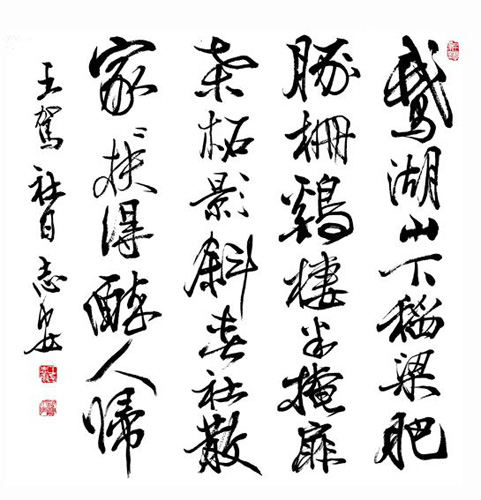 鵞湖山下稻粱肥
豚柵鷄棲半掩扉
桑柘影斜春社散
家〻扶得醉人歸
王駕社日志